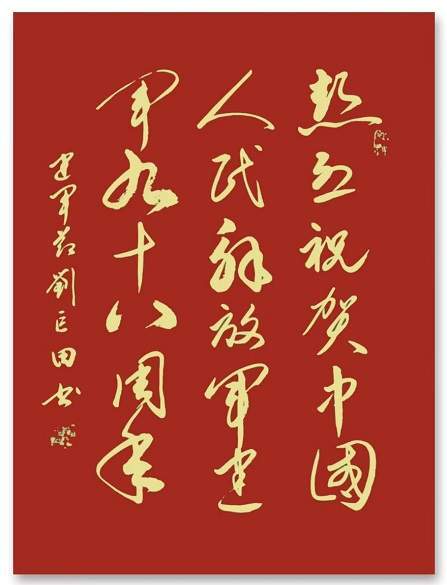 熱烈祝贺中國
人民解放军建
军九十八周年
建军節劉巨田书